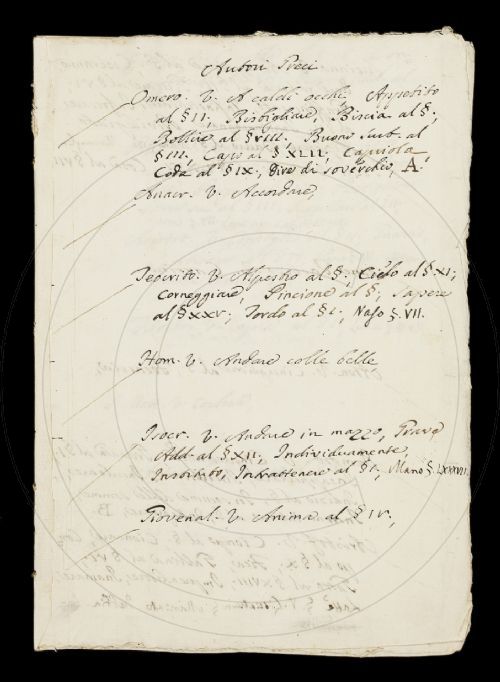 Autori Greci
Omero. v. A caldi occhi, Appetito
al § II; Bisbigliare, Biscia al §;
Bollire al § VIII; Buono Sust. al
§ III; Capo al § XLII; Capriola,
Coda al § IX; Dire di soverchio, A.
Anacr. v. Accordare,
Teocrito. v. Alpestro al §; Cielo al § XI;
Corneggiare, Pincione al §; Sapere
al § XXV; Tordo al § I; Naso §. VII.
Hom. v. Andare colle belle
Isocr. v. Andare in mazzo, Grave
Add. al § XII; Individuamente,
Insolito, Intrattenere al § I; Mano §. LXXXVII.
Giovenal. v. Anima al § IV;